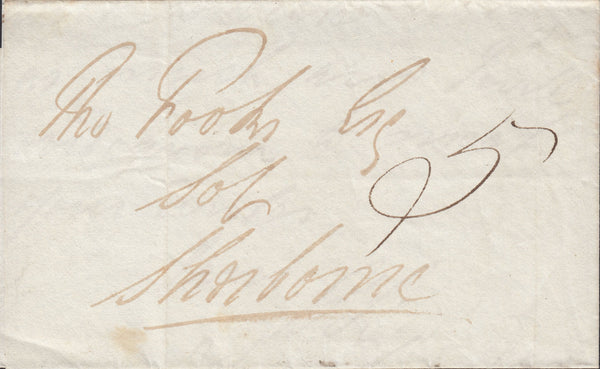 Tho Fooks Esq
5
Sol
Sherborne